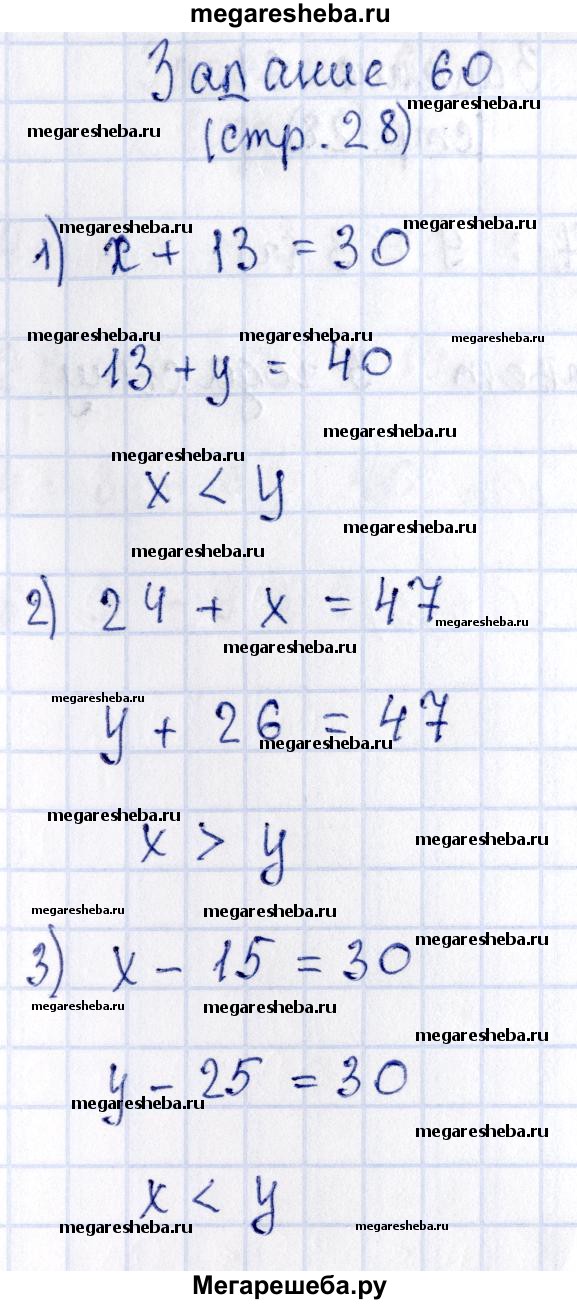 megaresheba.ru
Задание 60
megaresheba.ru
megaresheba.ru
(стр. 28)
megaresheba.ru
megaresheba.ru
1) x + 13 = 30
megaresheba.ru megaresheba.ru megaresheba.ru
13 + y = 40
megaresheba.ru
megaresheba.ru
x < y
megaresheba.ru
megaresheba.ru
2) 24 + x = 47
megaresheba.ru
megaresheba.ru
megaresheba.ru
y + 26 = 47
megaresheba.ru
megaresheba.ru
x > y
megaresheba.ru
megaresheba.ru megaresheba.ru
megaresheba.ru
3) x - 15 = 30
megaresheba.ru megaresheba.ru
megaresheba.ru
y - 25 = 30
megaresheba.ru
megaresheba.ru
x < y
megaresheba.ru megaresheba.ru
Мегарешеба.ру